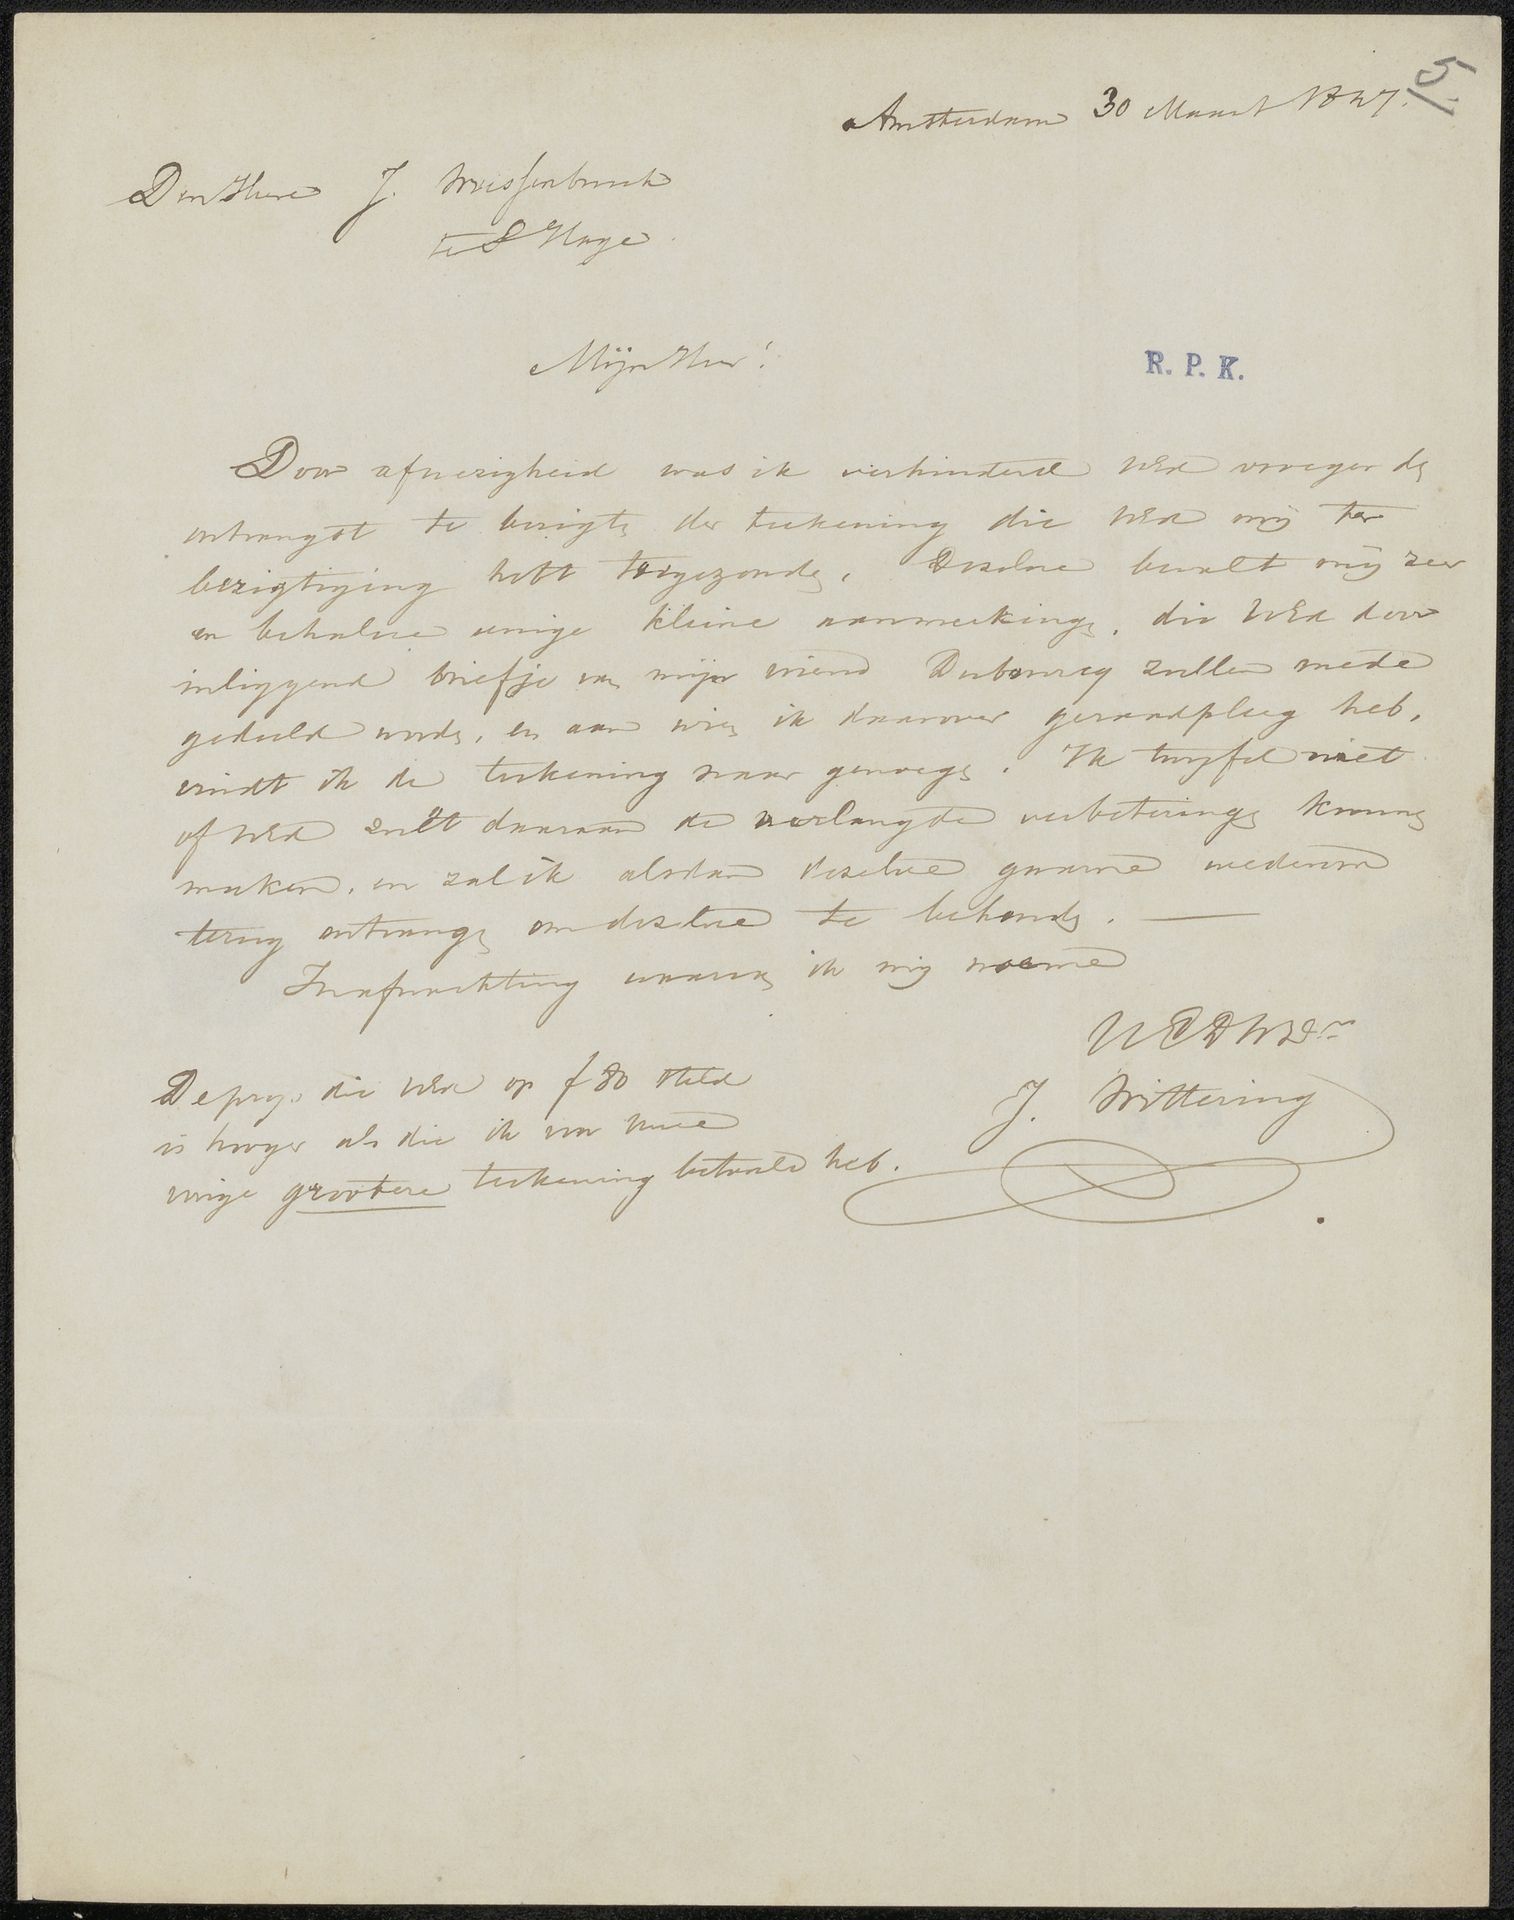 5
Amsterdam 30 Maart 1847.
Den Heere J. Weissenbruch
te S Hage.
Mijn Heer!
R. P. K.
Door afwezigheid was ik verhinderd UEd vroeger de
ontvangst te berigten der teekening die UEd mij ter
bezigtiging hebt toegezonden. Dezelve bevalt mij zeer
en behalve eenige kleine aanmerkingen, die UEd door
inliggend briefje van mijn vriend Dubourcq zullen mede
gedeeld worden, en aan wien ik daarover geraadpleeg heb,
vindt ik de teekening naar genoegen. Ik twyfel niet
of UEd zult daaraan de verlangde verbeteringen kunnen
maken, en zal ik alsdan dezelve gaarne wederom
terug ontvangen om dezelve te behouden.
In afwachting waarvan ik mij noeme
UEDWDr
J. Wittering
De prys die UEd op f 80 steld
is hooger als die ik voor Uwe
vorige grootere teekening betaald heb.